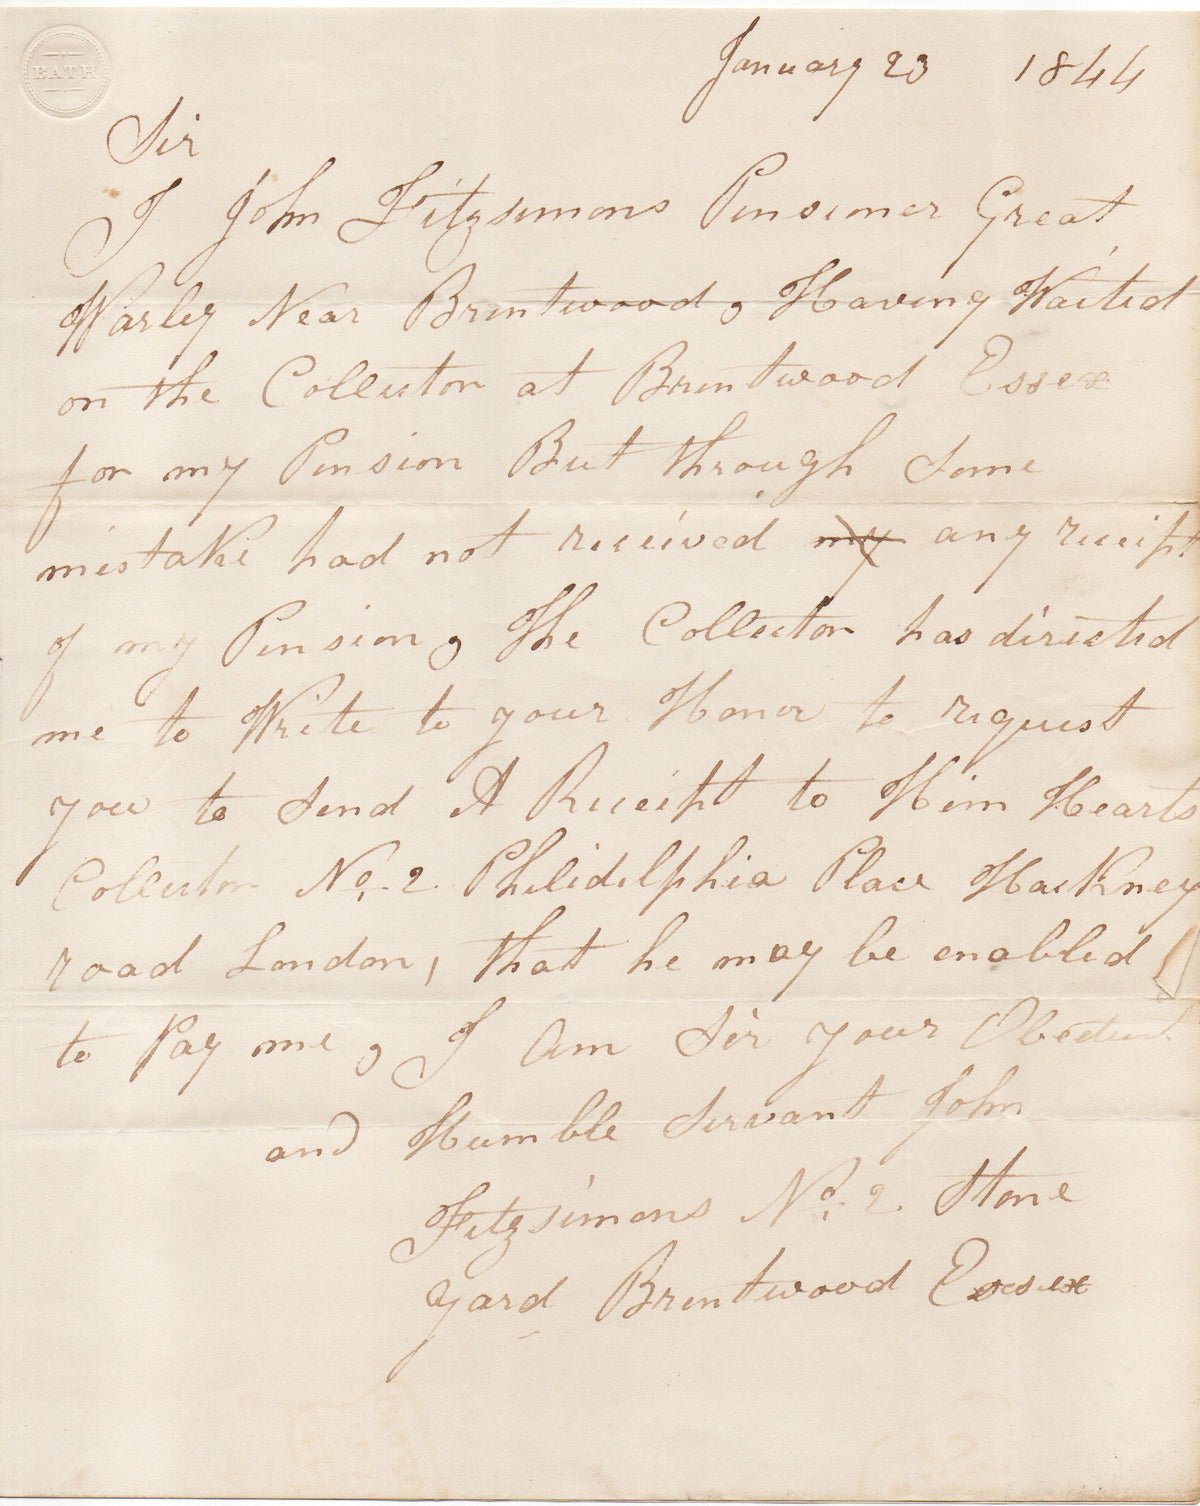 BATH
January 23 1844
Sir
I John Fitzsimons Pensioner Great
Warley Near Brentwood, Having Waited
on the Collector at Brentwood Essex
for my Pension But through Some
mistake had not received my any receipt
of my Pension, The Collector has directed
me to Write to your Honor to request
you to Send A Receipt to Him Hearts
Collector No. 2 Philidelphia Place Hackney
road London, that he may be enabled
to Pay me, I Am Sir your Obedient
and Humble Servant John
Fitzsimons No. 2 Stone
yard Brentwood Essex